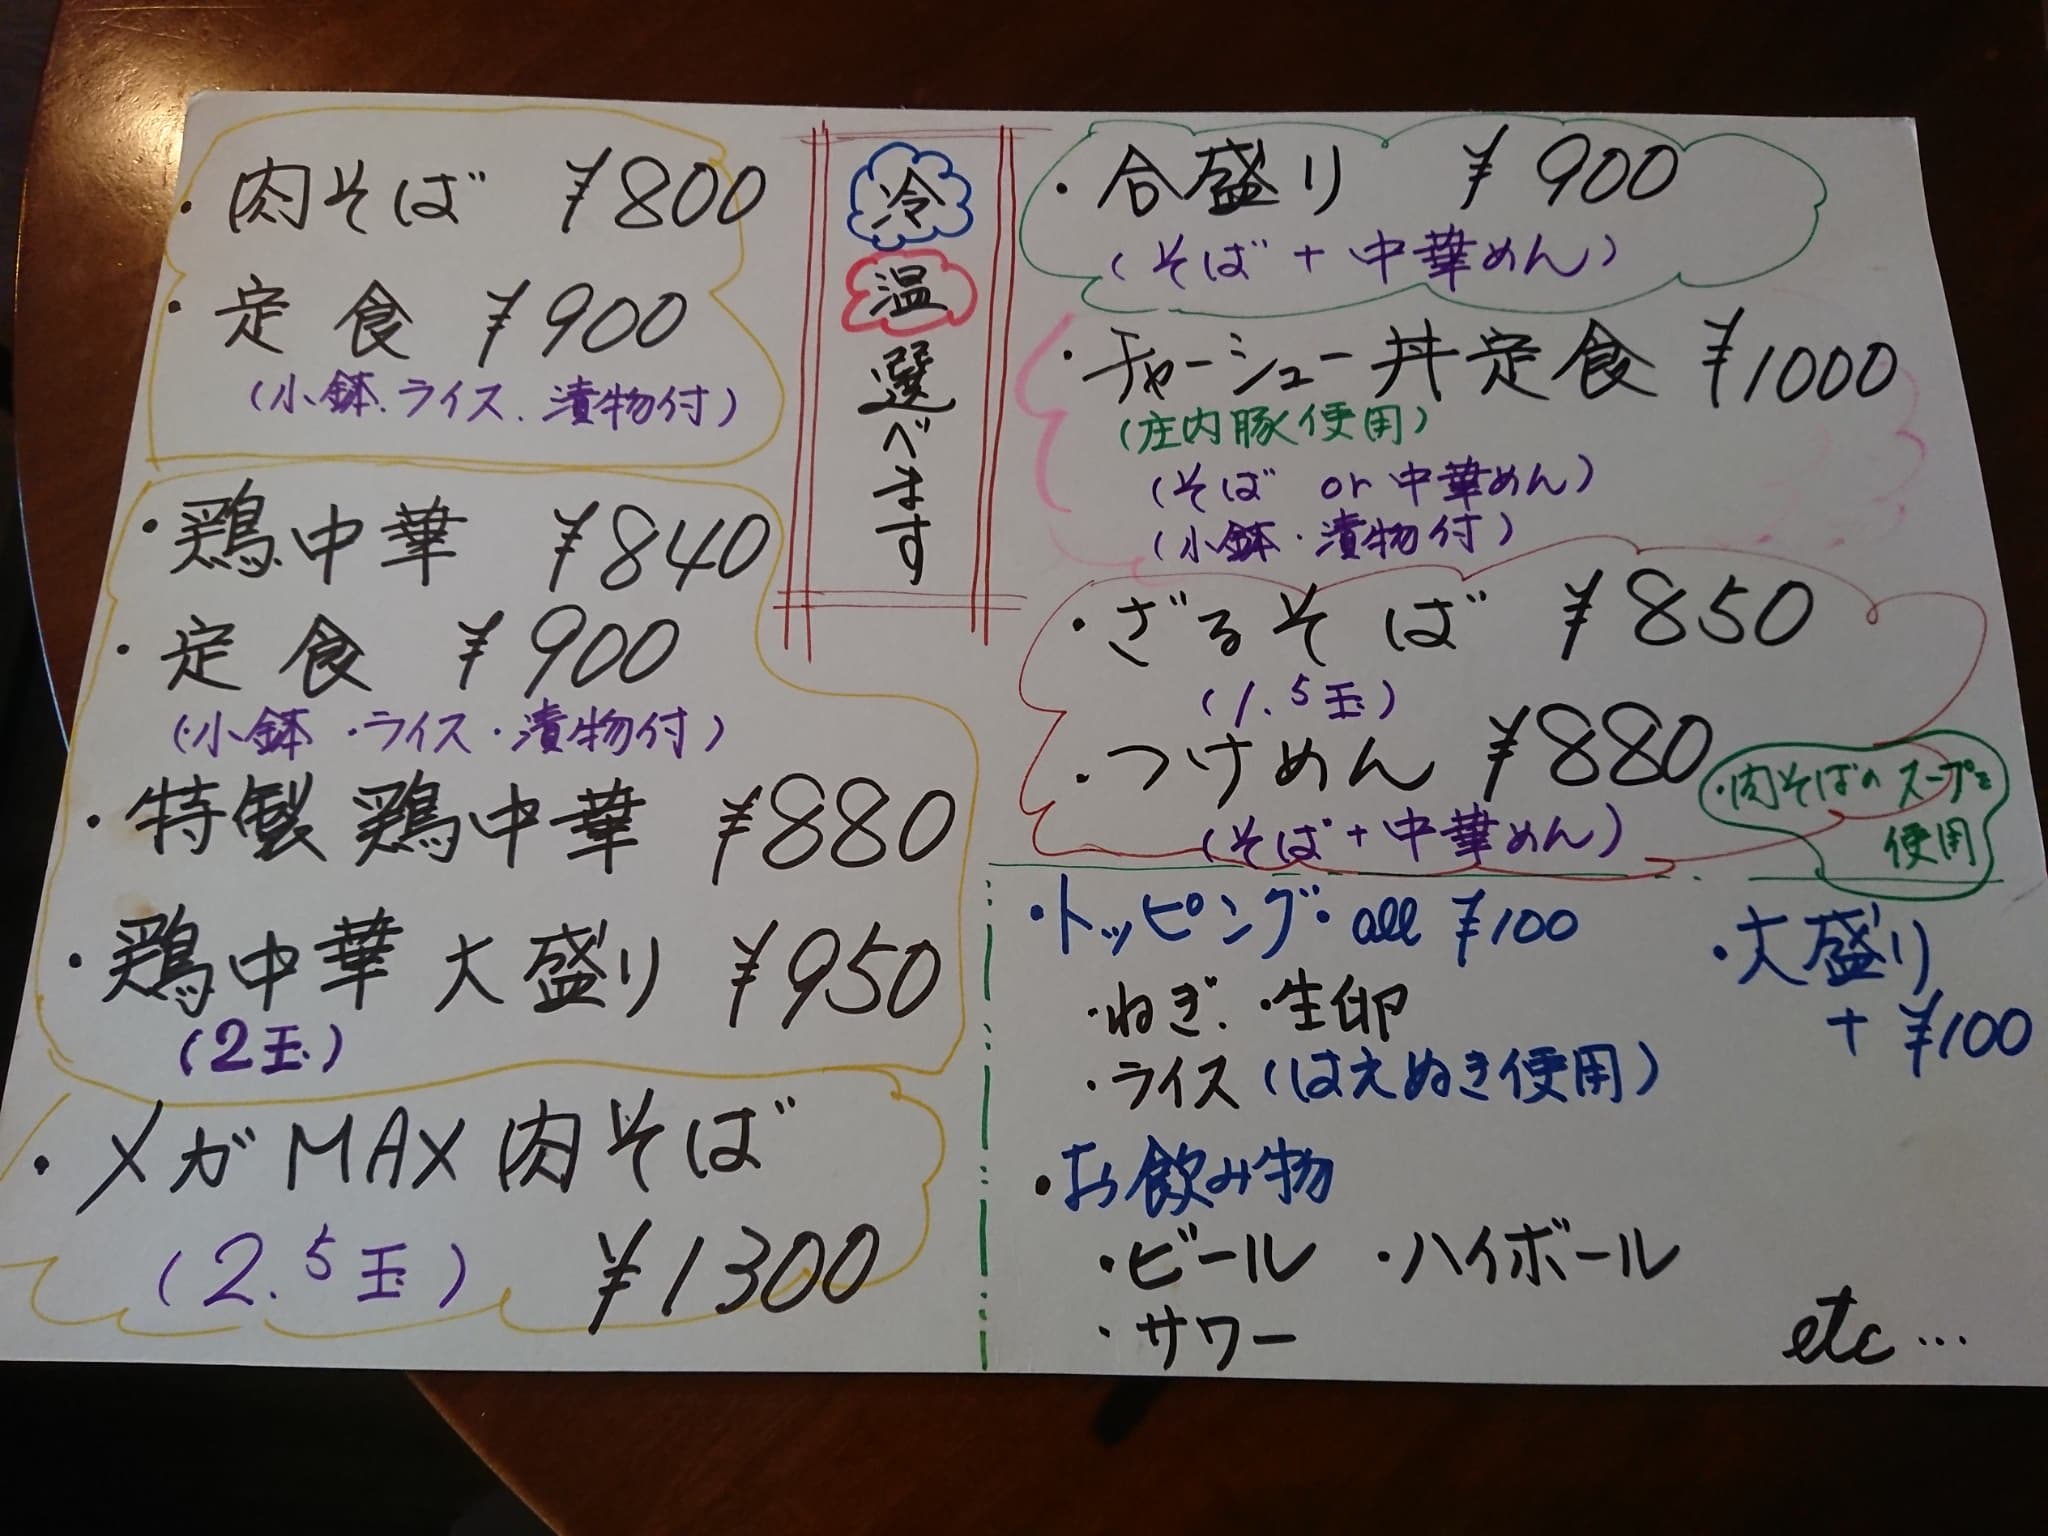 ・肉そば ¥800
・定食 ¥900
(小鉢.ライス.漬物付)
・鶏中華 ¥840
・定食 ¥900
(小鉢・ライス・漬物付)
・特製鶏中華 ¥880
・鶏中華大盛り ¥950
(2玉)
・メガMAX肉そば
(2.5玉) ¥1300
冷
温
選べます
・合盛り ¥900
(そば+中華めん)
・チャーシュー丼定食 ¥1000
(庄内豚使用)
(そば or 中華めん)
(小鉢・漬物付)
・ざるそば ¥850
(1.5玉)
・つけめん ¥880
(そば+中華めん)
・肉そばのスープを
使用
・トッピング・all ¥100
・ねぎ.・生卵
・ライス(はえぬき使用)
・大盛り
+¥100
・お飲み物
・ビール ・ハイボール
・サワー
etc…